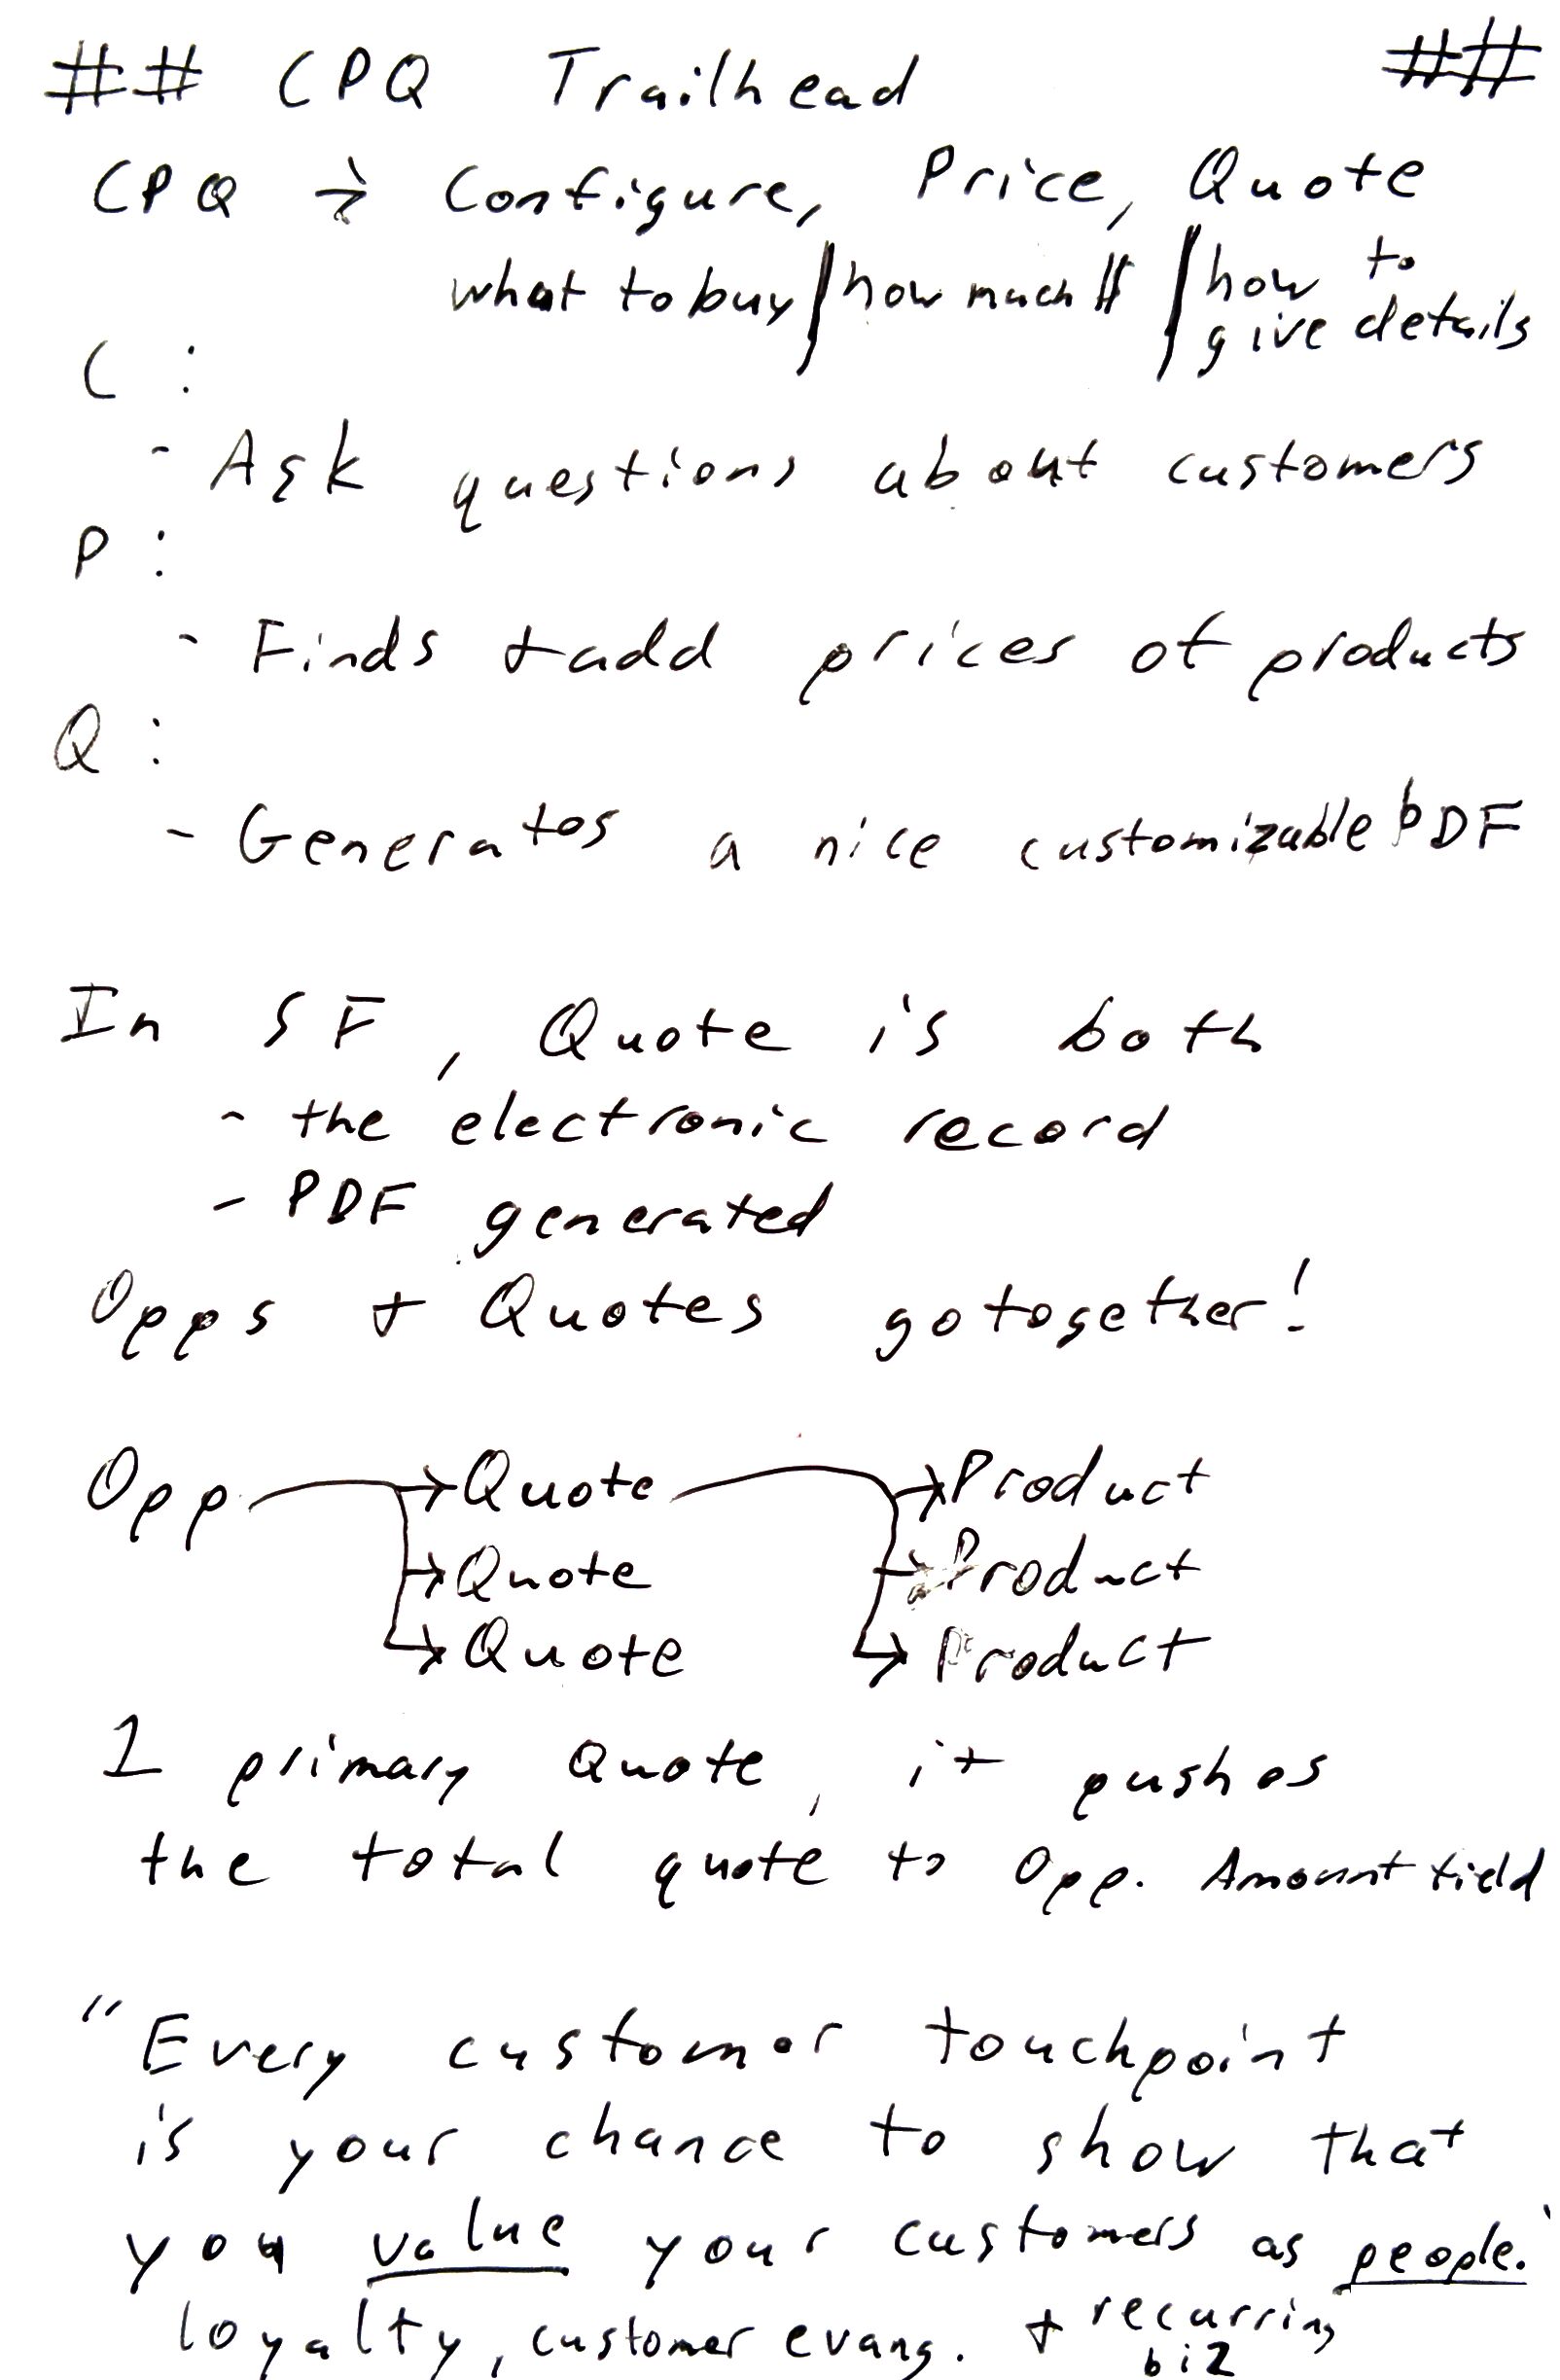 ## CPQ Trailhead ##
CPQ → Configure, Price, Quote
what to buy / how much $ / how to
give details
C :
- Ask questions about customers
P :
- Finds + add prices of products
Q :
- Generates a nice customizable PDF
In SF, Quote is both
- the electronic record
- PDF generated
Opps + Quotes go together!
Opp → Quote → Product
→ Quote → Product
→ Quote → Product
1 primary Quote, it pushes
the total quote to Opp. Amount field
"Every customer touchpoint
is your chance to show that
you value your customers as people."
loyalty, customer evang. + recurring
biz